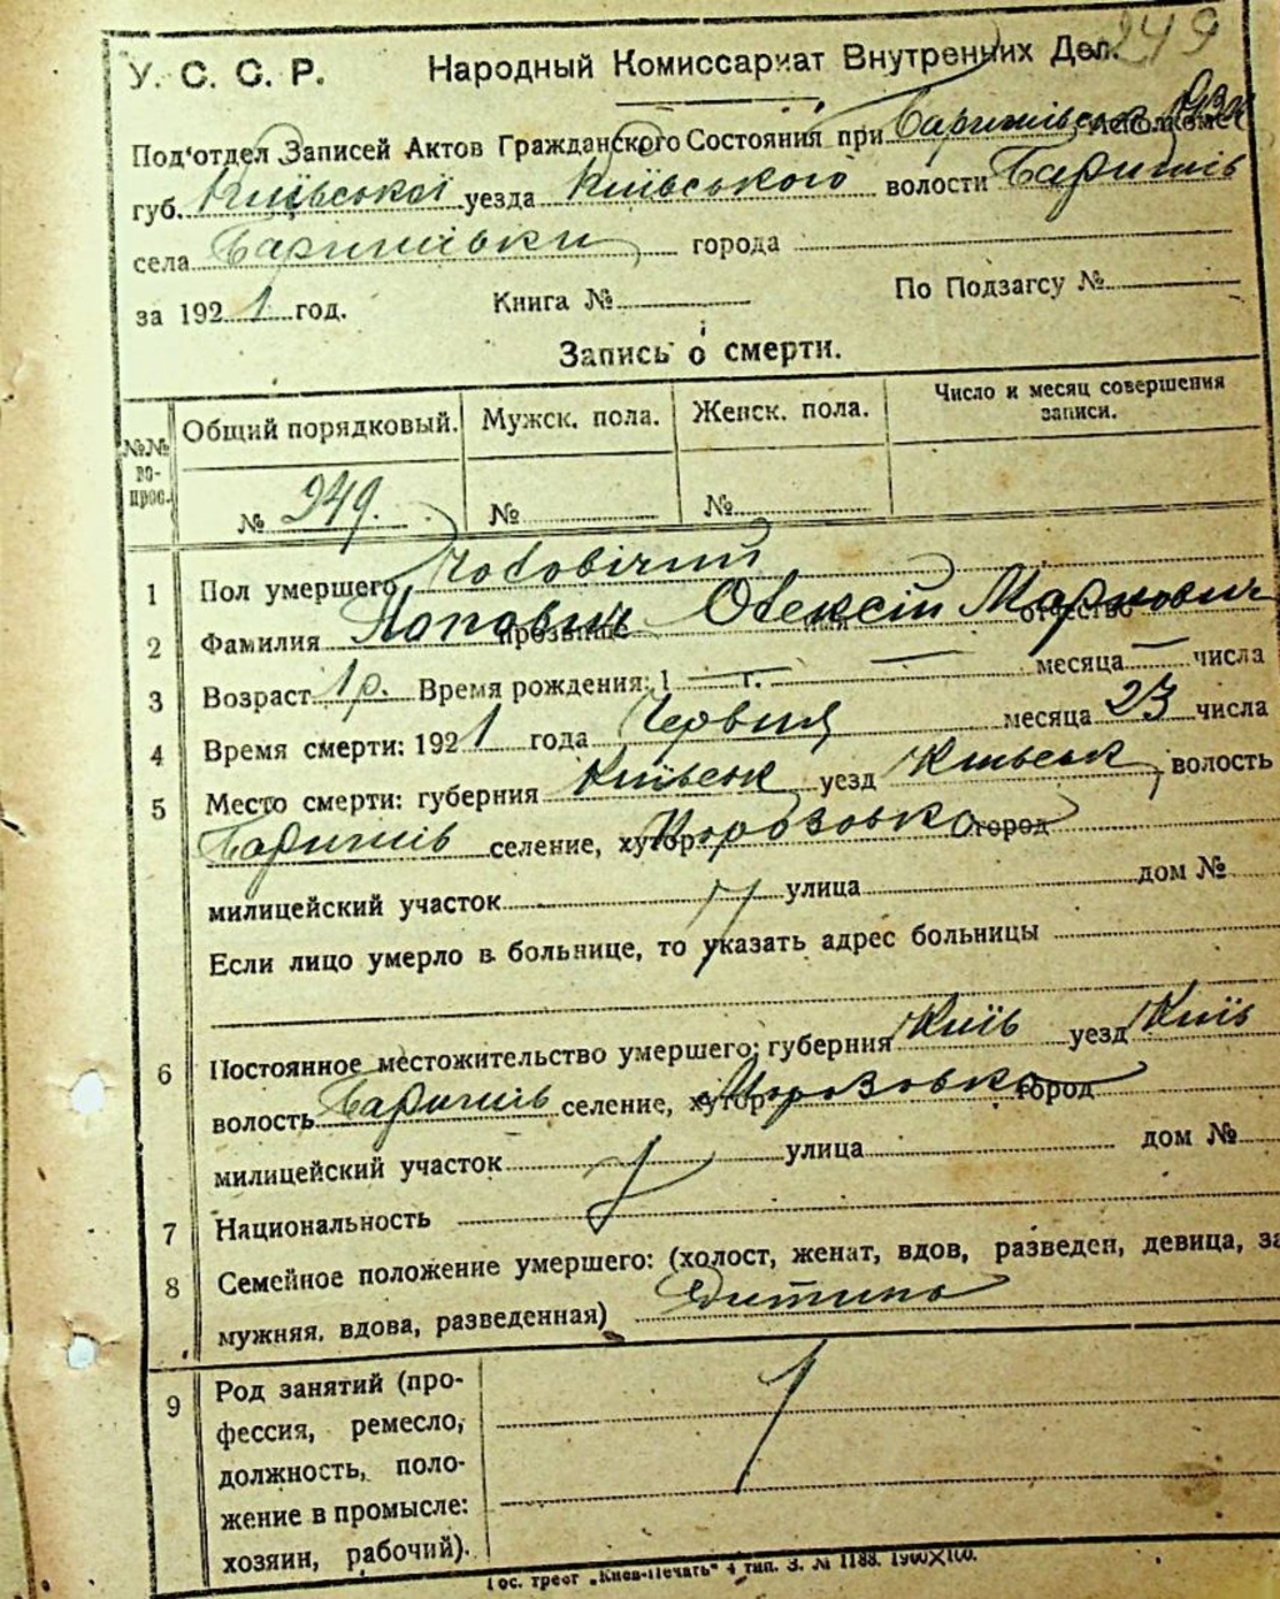 249
У. С. С. Р. Народный Комиссариат Внутренних Дел.
Под'отдел Записей Актов Гражданского Состояния при Баришівськ
губ. Київської уезда Київського волости Баришів
села Баришівки города
за 1921 год. Книга № По Подзагсу №
Запись о смерти.
№№ вопрос. Общий порядковый. Мужск. пола. Женск. пола. Число и месяц совершения записи.
№ 249. № №
1 Пол умершего Чоловічий
2 Фамилия Попович прозвище Олексій имя Маркович отчество
3 Возраст 1 р. Время рождения: 1 — г. — месяца — числа
4 Время смерти: 1921 года Червня месяца 23 числа
5 Место смерти: губерния Київськ уезд Київськ волость
Баришів селение, хутор Морозовка город
милицейский участок улица дом №
Если лицо умерло в больнице, то указать адрес больницы
6 Постоянное местожительство умершего: губерния Київ уезд Київ
волость Баришів селение, хутор Морозовка город
милицейский участок улица дом №
7 Национальность
8 Семейное положение умершего: (холост, женат, вдов, разведен, девица, за
мужняя, вдова, разведенная) Дитина
9 Род занятий (про-
фессия, ремесло,
должность, поло-
жение в промысле:
хозяин, рабочий).
Гос. трест „Киев-Печать" 4 тип. З. № 1188. 1900Х100.